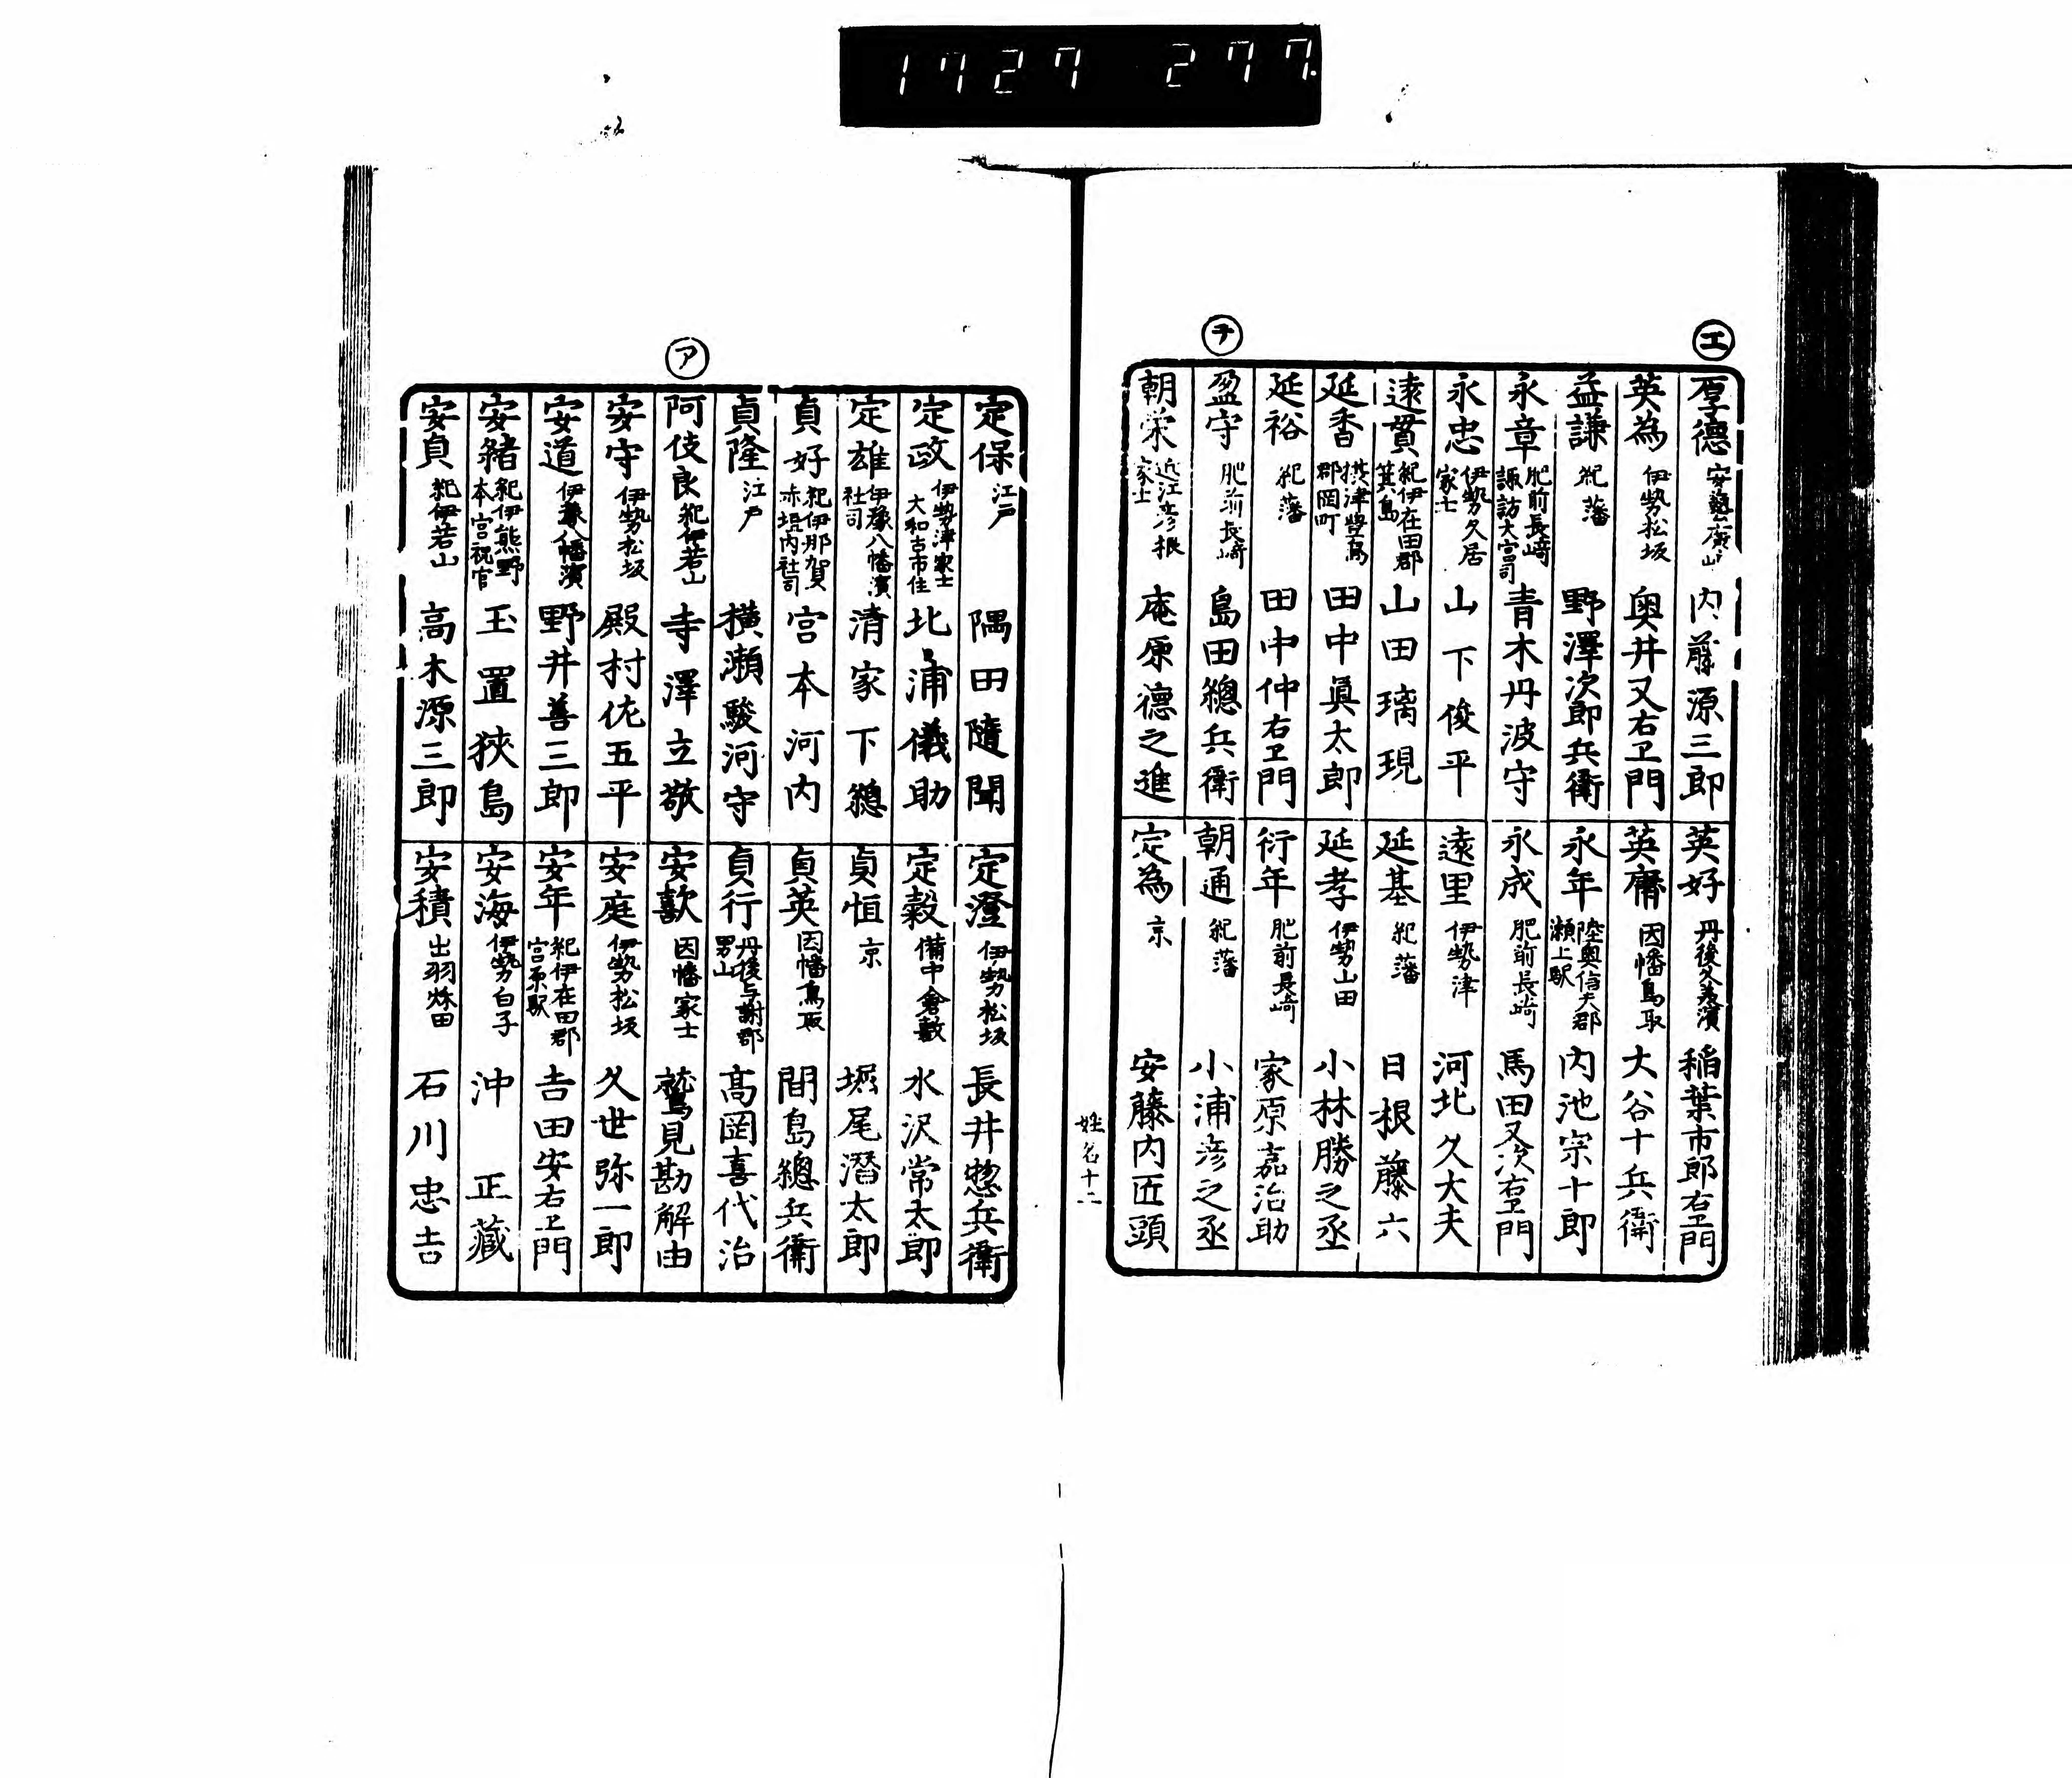 1727 277.
エ
厚德 安藝廣島 内藤源三郎
英為 伊勢松坂 奥井又右卫門
益謙 紀藩 野澤次郎兵衛
永章 肥前長崎諏訪大宮司 青木丹波守
永忠 伊勢久居家士 山下俊平
遠貫 紀伊在田郡箕島 山田璃現
延香 摂津豐島郡岡町 田中眞太郎
延裕 紀藩 田中仲右卫門
チ
盈守 肥前長崎 島田總兵衛
朝栄 近江彦根家士 庵原德之進
英好 丹後久美濱 稲葉市郎右卫門
英齊 因幡鳥取 大谷十兵衛
永年 陸奥信夫郡瀬上駅 内池宗十郎
永成 肥前長崎 馬田又次右卫門
遠里 伊勢津 河北久大夫
延基 紀藩 日根藤六
延孝 伊勢山田 小林勝之丞
衍年 肥前長崎 家原嘉治助
朝通 紀藩 小浦彦之丞
定為 京 安藤内匠頭
姓名十二
定保 江戸 隅田隨聞
定政 伊勢津家士大和古市住 北浦儀助
定雄 伊豫八幡濱社司 清家下總
貞好 紀伊那賀赤垣内社司 宮本河内
貞隆 江戸 横瀬駿河守
ア
阿伎良 紀伊若山 寺澤立敬
安守 伊勢松坂 殿村佐五平
安道 伊豫八幡濱 野井善三郎
安緒 紀伊熊野本宮祝官 玉置狭島
安貞 紀伊若山 高木源三郎
定澄 伊勢松坂 長井惣兵衛
定穀 備中倉敷 水沢常太郎
貞恒 京 堀尾潛太郎
貞英 因幡鳥取 間島總兵衛
貞行 丹後与謝郡男山 髙岡喜代治
安歡 因幡家士 鷲見勘解由
安庭 伊勢松坂 久世弥一郎
安年 紀伊在田郡宮原駅 吉田安右卫門
安海 伊勢白子 沖正藏
安積 出羽秌田 石川忠吉